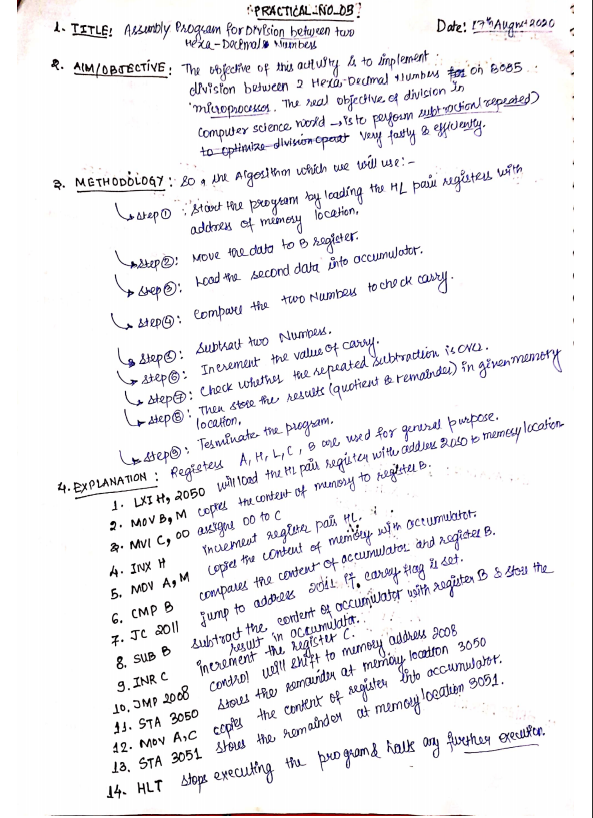 PRACTICAL-NO-03:
1. TITLE: Assumbly Program for Division between two Date: 17th August 2020
Hexa-Decimal Numbers
2. AIM/OBJECTIVE: The objective of this activity is to implement
division between 2 Hexa-Decimal Numbers for on 8085
microprocessor. The real objective of division in
computer science world → is to perform subtraction (repeated)
to optimize division operat very fastly & efficiently.
3. METHODOLOGY: So, the Algorithm which we will use:-
Step ①: Start the program by loading the HL pair registers with
address of memory location.
Step ②: Move the data to B register.
Step ③: Load the second data into accumulator.
Step ④: Compare the two Numbers to check carry.
Step ⑤: Subtract two Numbers.
Step ⑥: Increment the value of carry.
Step ⑦: Check whether the repeated subtraction is over.
Step ⑧: Then store the results (quotient & remainder) in given memory
location.
Step ⑨: Terminate the program.
4. EXPLANATION: Registers A, H, L, C, B are used for general purpose.
1. LXI H, 2050 will load the HL pair register with address 2050 to memory location
2. MOV B, M copies the content of memory to register B.
3. MVI C, 00 assigns 00 to C
4. INX H increment register pair HL.
5. MOV A, M copies the content of memory with accumulator.
6. CMP B compares the content of accumulator and register B.
7. JC 2011 jump to address 2011 if carry flag is set.
8. SUB B subtract the content of accumulator with register B & stores the
result in accumulator.
9. INR C increment the register C.
10. JMP 2008 control will shift to memory address 2008
11. STA 3050 stores the remainder at memory location 3050
12. MOV A,C copies the content of register into accumulator.
13. STA 3051 stores the remainder at memory location 3051.
14. HLT stops executing the program & halts any further execution.